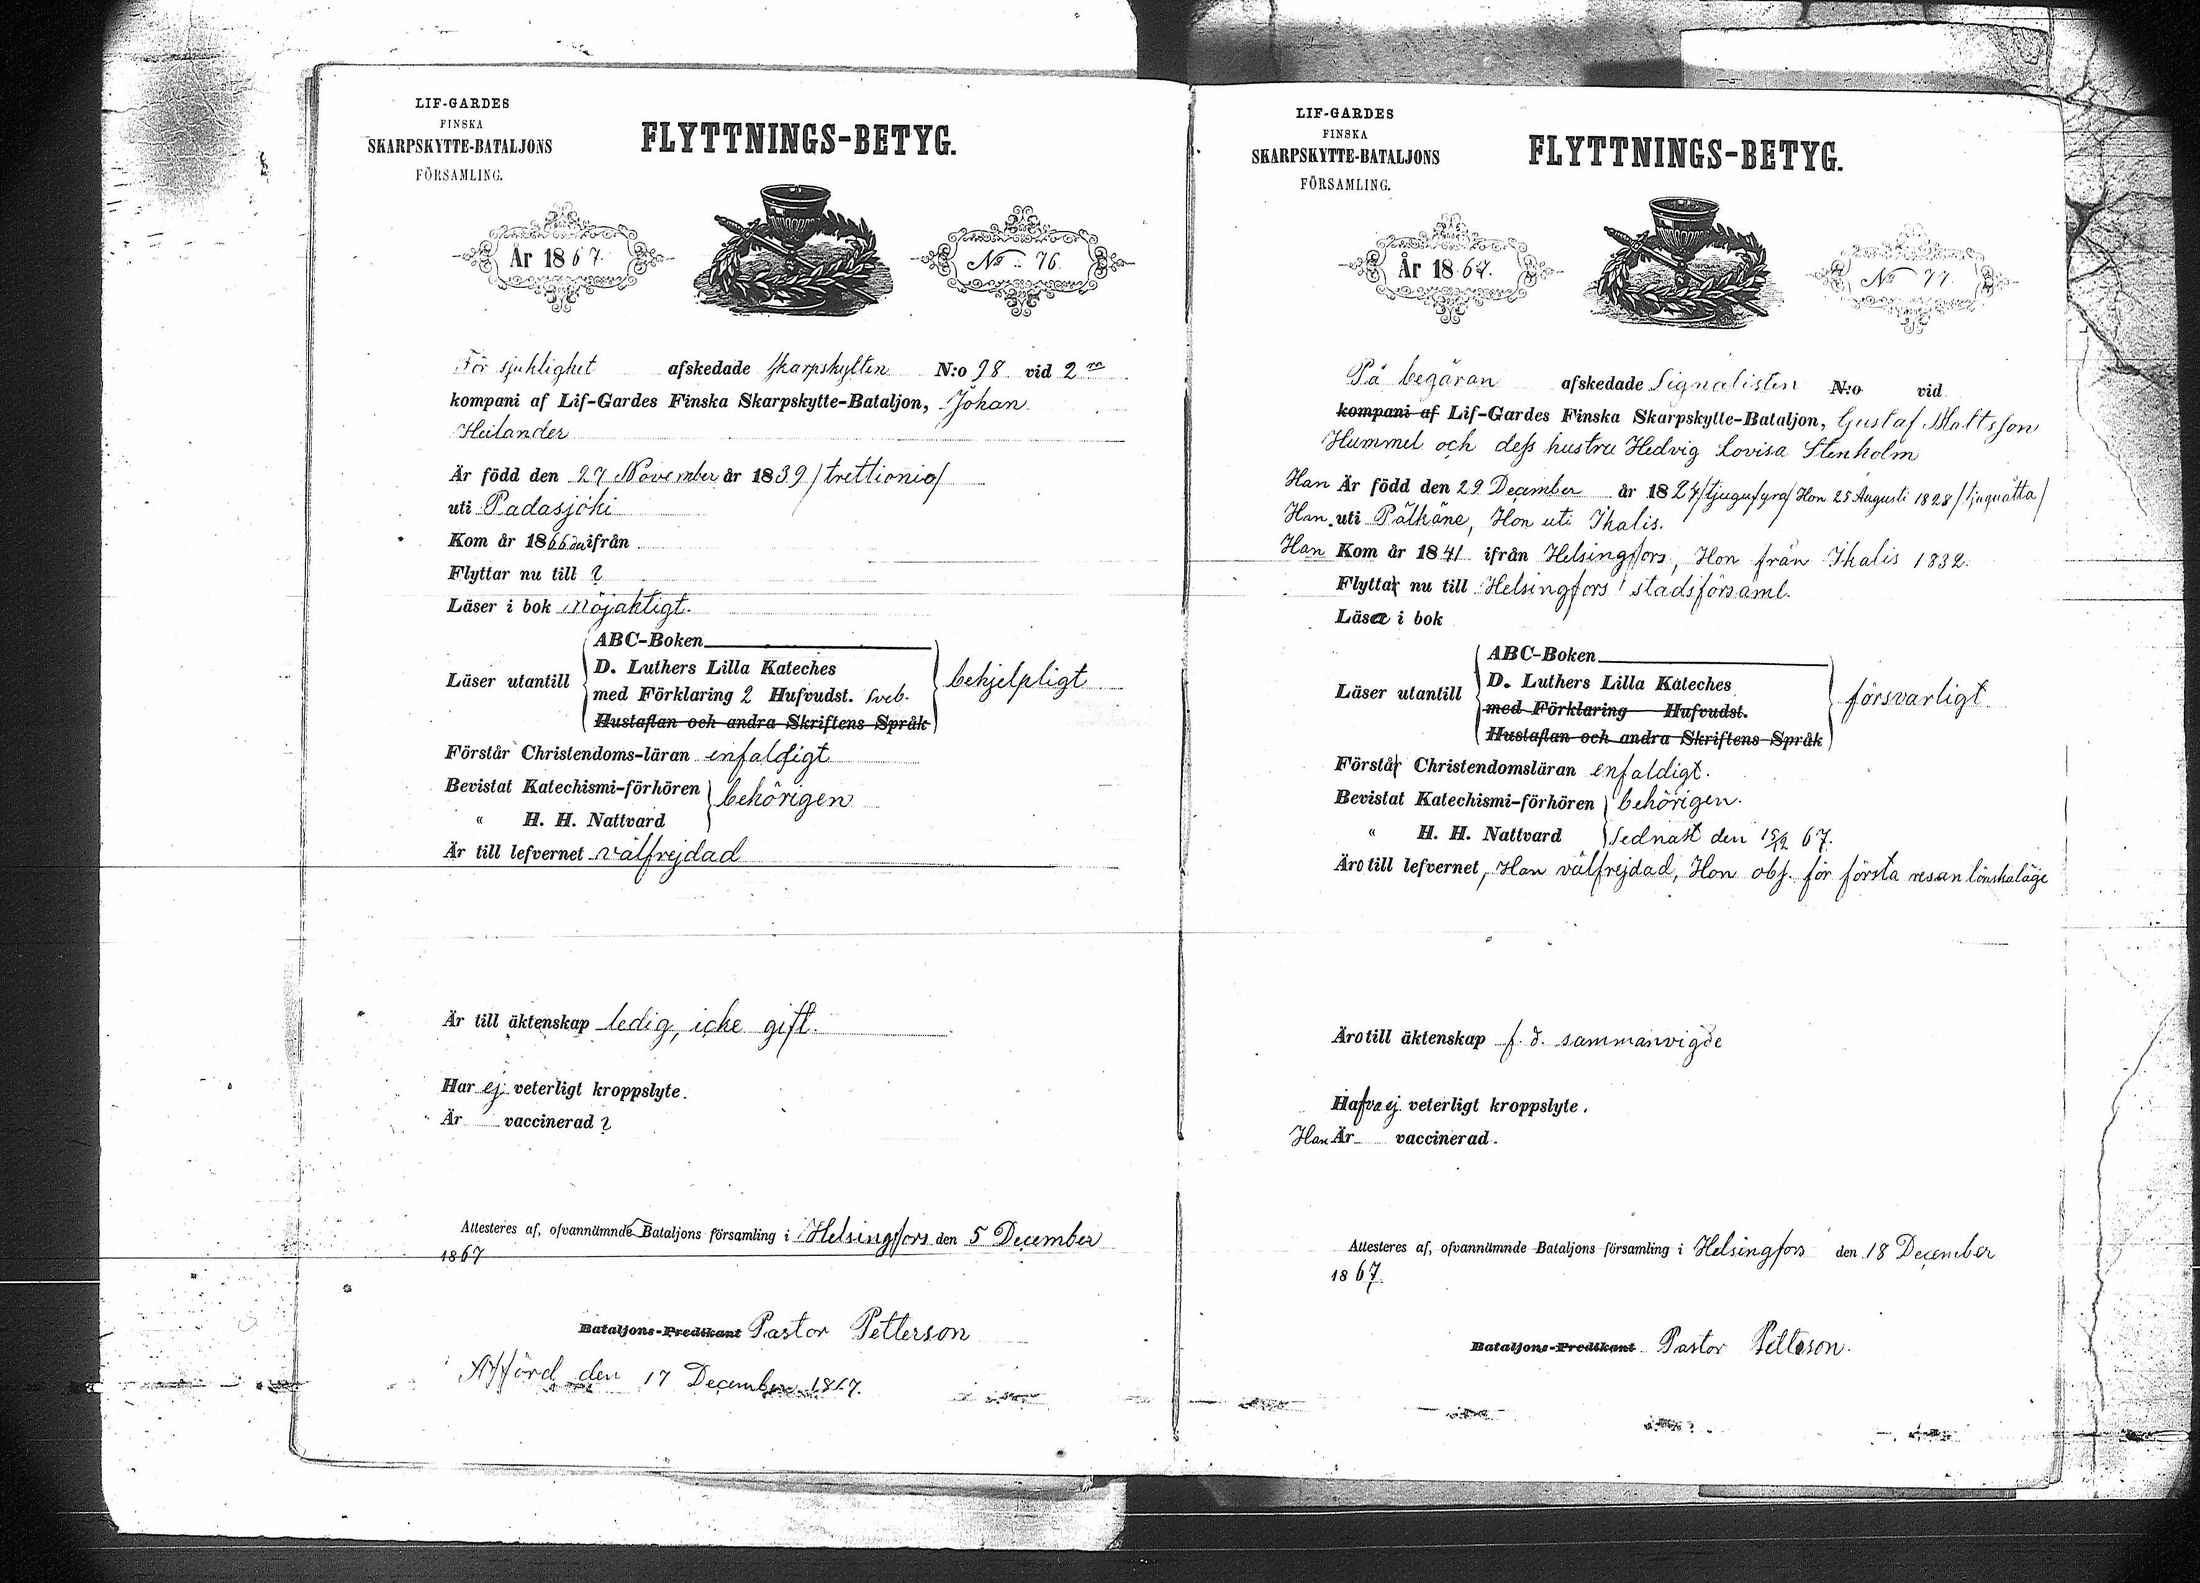 LIF-GARDES
FINSKA
SKARPSKYTTE-BATALJONS
FÖRSAMLING.
FLYTTNINGS-BETYG.
År 1867.
No 76.
För sjuklighet afskedade Skarpskytten N:o 98 vid 2ra
kompani af Lif-Gardes Finska Skarpskytte-Bataljon, Johan
Heilander
Är född den 27 November år 1839 /trettionio/
uti Padasjoki
Kom år 1866 ifrån
Flyttar nu till ?
Läser i bok nöjaktigt.
ABC-Boken
Läser utantill D. Luthers Lilla Kateches
med Förklaring 2 Hufvudst. Sveb. behjelpligt
Hustaflan och andra Skriftens Språk
Förstår Christendoms-läran enfaldigt
Bevistat Katechismi-förhören behörigen
" H. H. Nattvard
Är till lefvernet välfrejdad
Är till äktenskap ledig, icke gift.
Har ej veterligt kroppslyte.
Är vaccinerad ?
Attesteres af, ofvannämnde Bataljons församling i Helsingfors den 5 December
1867
Bataljons-Predikant Pastor Petterson
Afförd den 17 December 1867.
LIF-GARDES
FINSKA
SKARPSKYTTE-BATALJONS
FÖRSAMLING.
FLYTTNINGS-BETYG.
År 1867.
No 77.
På begäran afskedade Signalisten N:o vid
kompani af Lif-Gardes Finska Skarpskytte-Bataljon, Gustaf Mattsson
Hummel och dess hustru Hedvig Lovisa Stenholm
Han Är född den 29 December år 1824 /tjugufyra/ Hon 25 Augusti 1828 /tjuguåtta/
Han uti Pälkäne, Hon uti Ikalis.
Han Kom år 1841 ifrån Helsingfors, Hon från Ikalis 1832.
Flytta nu till Helsingfors stadsförsaml.
Läsa i bok
ABC-Boken
Läser utantill D. Luthers Lilla Kateches försvarligt
med Förklaring Hufvudst.
Hustaflan och andra Skriftens Språk
Förstå Christendomsläran enfaldigt.
Bevistat Katechismi-förhören behörigen.
" H. H. Nattvard sednast den 15/12 67.
Äro till lefvernet, Han välfrejdad, Hon abs. för första resan lönskaläge
Äro till äktenskap f. d. sammanvigde
Hafva ej veterligt kroppslyte.
Han Är vaccinerad.
Attesteres af, ofvannämnde Bataljons församling i Helsingfors den 18 December
1867.
Bataljons-Predikant Pastor Petterson.